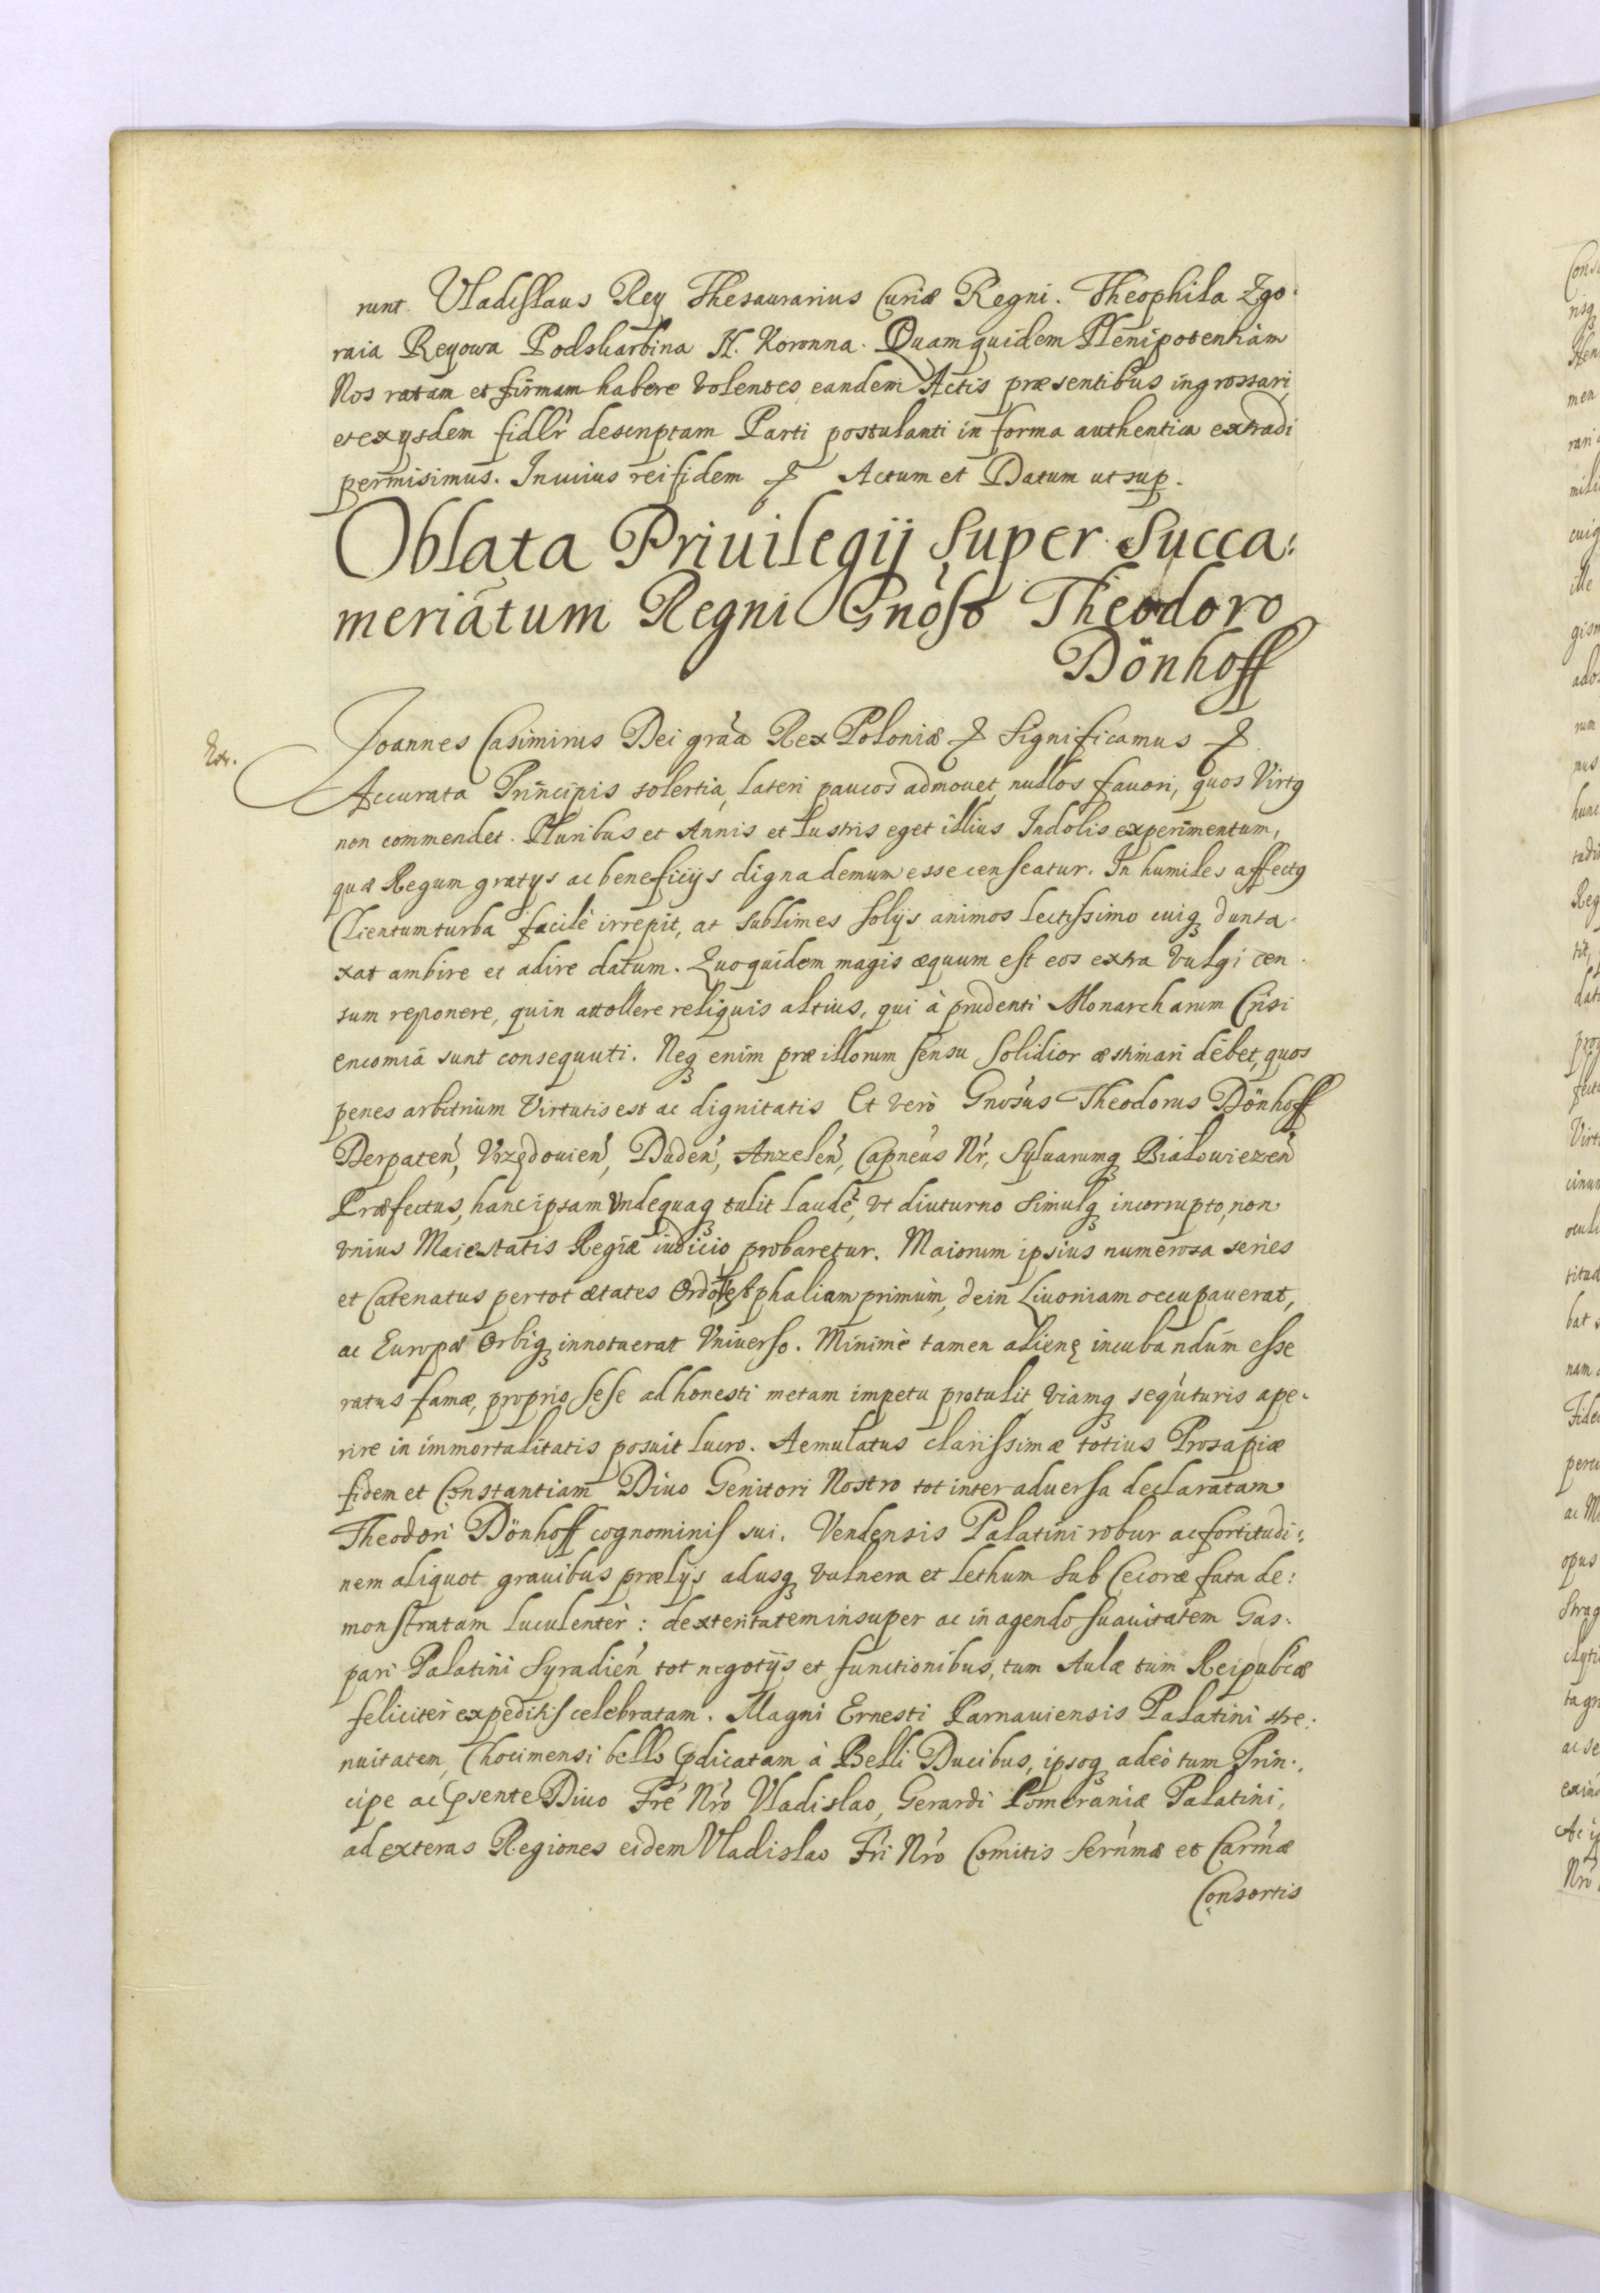 runt. Vladislaus Rey Thesaurarius Curiæ Regni. Theophila Zgo-
raia Reyowa Podskarbina N. Koronna. Quam quidem Plenipotentiam
Nos ratam et firmam habere volentes, eandem Actis præsentibus ingrossari,
et ex ijsdem fidlr descriptam Parti postulanti in forma authentica extradi
permisimus. In cuius rei fidem & Actum et Datum ut sup.
Oblata Priuilegij super Succa:
meriatum Regni Gnoso Theodoro
Dönhoff
Joannes Casimirus Dei grãa Rex Poloniæ & Significamus &
Extr.
Accurata Principis solertia, lateri paucos admouet, nullos fauori, quos Virtꝰ
non commendet. Pluribus et Annis et lustris eget illius Indolis experimentum,
quæ Regum gratijs ac beneficijs digna demum esse censeatur. In humiles affectꝰ
Clientum turba facilè irrepit, at sublimes solijs animos lectissimo cuiqꝫ dunta-
xat ambire et adire datum. Quo quidem magis æquum est eos extra vulgi cen-
sum reponere, quin attollere reliquis altius, qui à prudenti Monarcharum Crisi
encomia sunt consequuti. Neqꝫ enim præ illorum sensu solidior æstimari debet, quos
penes arbitrium Virtutis est ac dignitatis Et verò Gnosus Theodorus Dönhoff
Derpaten, Vrzędouien, Duden, Anzelen, Capneus Nr, Syluarumqꝫ Białowiezen
Præfectus, hanc ipsam Vndequaqꝫ tulit laudẽ, vt diuturno simulqꝫ incorrupto, non
vnius Maiestatis Regiæ iudicio probaretur. Maiorum ipsius numerosa series
et Catenatus per tot ætates Ordo Westphaliam primùm, dein Liuoniam occupauerat,
ac Europæ Orbiqꝫ innotuerat Vniuerso. Minimè tamen alienę incubandum esse
ratus famæ, proprio sese ad honesti metam impetu protulit, viamqꝫ sequuturis ape-
rire in immortalitatis posuit lucro. Aemulatus clarissimæ totius Prosapiæ
fidem et Constantiam Diuo Genitori Nostro tot inter aduersa declaratam
Theodori Dönhoff cognominis sui, Vendensis Palatini robur ac fortitudi:
nem aliquot grauibus prælijs adusqꝫ vulnera et lethum sub Cecoræ fata de:
monstratam luculentèr: dexteritatem insuper ac in agendo suauitatem Gas-
pari Palatini Syradien tot negotijs et functionibus, tum Aulæ tum Reipubcæ
feliciter expeditis celebratam. Magni Ernesti Parnauiensis Palatini stre:
nuitatem, Chocimensi bello prædicatam à Belli Ducibus, ipsoqꝫ adeò tum Prin-
cipe ac pnte Diuo Fre Nro Vladislao, Gerardi Pomeraniæ Palatini,
ad exteras Regiones eidem Vladislao Fri Nro Comitis Sernmæ et Carmæ
Consortis